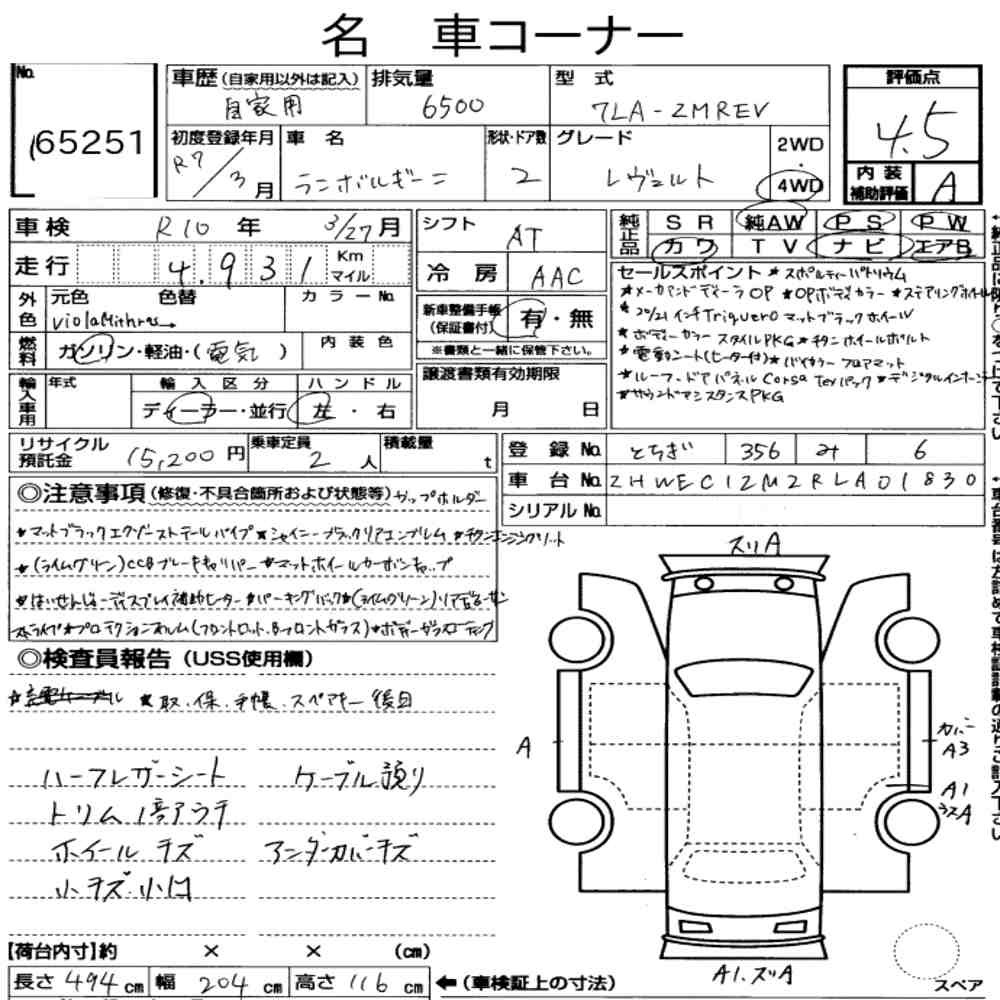 名 車コーナー
No.
65251
車歴(自家用以外は記入)
自家用
排気量
6500
型 式
7LA-ZMREV
評価点
4.5
内装補助評価
A
初度登録年月
R7/3月
車 名
ランボルギーニ
形状・ドア数
2
グレード
レヴェルト
2WD
・
4WD
車検 R10 年 3/27月
走行 4,931 Km マイル
シフト
AT
冷 房 AAC
純正品
SR 純AW PS PW
カワ TV ナビ エアB
外色
元色 色替
カラーNo.
violaMithras→
新車整備手帳(保証書付) 有・無
※書類と一緒に保管下さい。
燃料
ガソリン・軽油・(電気)
内装色
輸入車用
年式
輸入区分
ハンドル
ディーラー・並行 左・右
譲渡書類有効期限
月 日
セールスポイント ★スポルティーバトリウム
★メーカアンドディーラOP ★OPボディカラー ★ステアリングホイール
★20/21インチTrigueroマットブラックホイール
★ボディーカラースタイルPKG ★チタンホイールボルト
★電動シート(ヒーター付) ★バイカラーフロアマット
★ルーフ・ドアパネルCorsa Texパック ★デジタルインナー
★サウンドアシスタンスPKG
リサイクル預託金 15,200円
乗車定員 2人
積載量 t
登録No. とちぎ 356 み 6
車台No. ZHWEC1ZM2RLA01830
シリアルNo.
◎注意事項(修復・不具合箇所および状態等) カップホルダー
★マットブラックエグゾーストテールパイプ ★シャイニーブラックリアエンブレム ★チタンエンジンボルト
★(ライムグリーン)CCBブレーキキャリパー ★マットホイールカーボンキャップ
★パーキングパック
★ボディーガラスコーティング
◎検査員報告(USS使用欄)
★取、保、手帳、スペアキー後日
ハーフレザーシート ケーブル預り
トリム1倍アウテ
ホイールキズ アンダーカバーキズ
小キズ・小凹
スリA
A
カバーA3
A1
ラスA
A1.スリA
【荷台内寸】約 × × (cm)
長さ 494 cm 幅 204 cm 高さ 116 cm ←(車検証上の寸法)
スペア